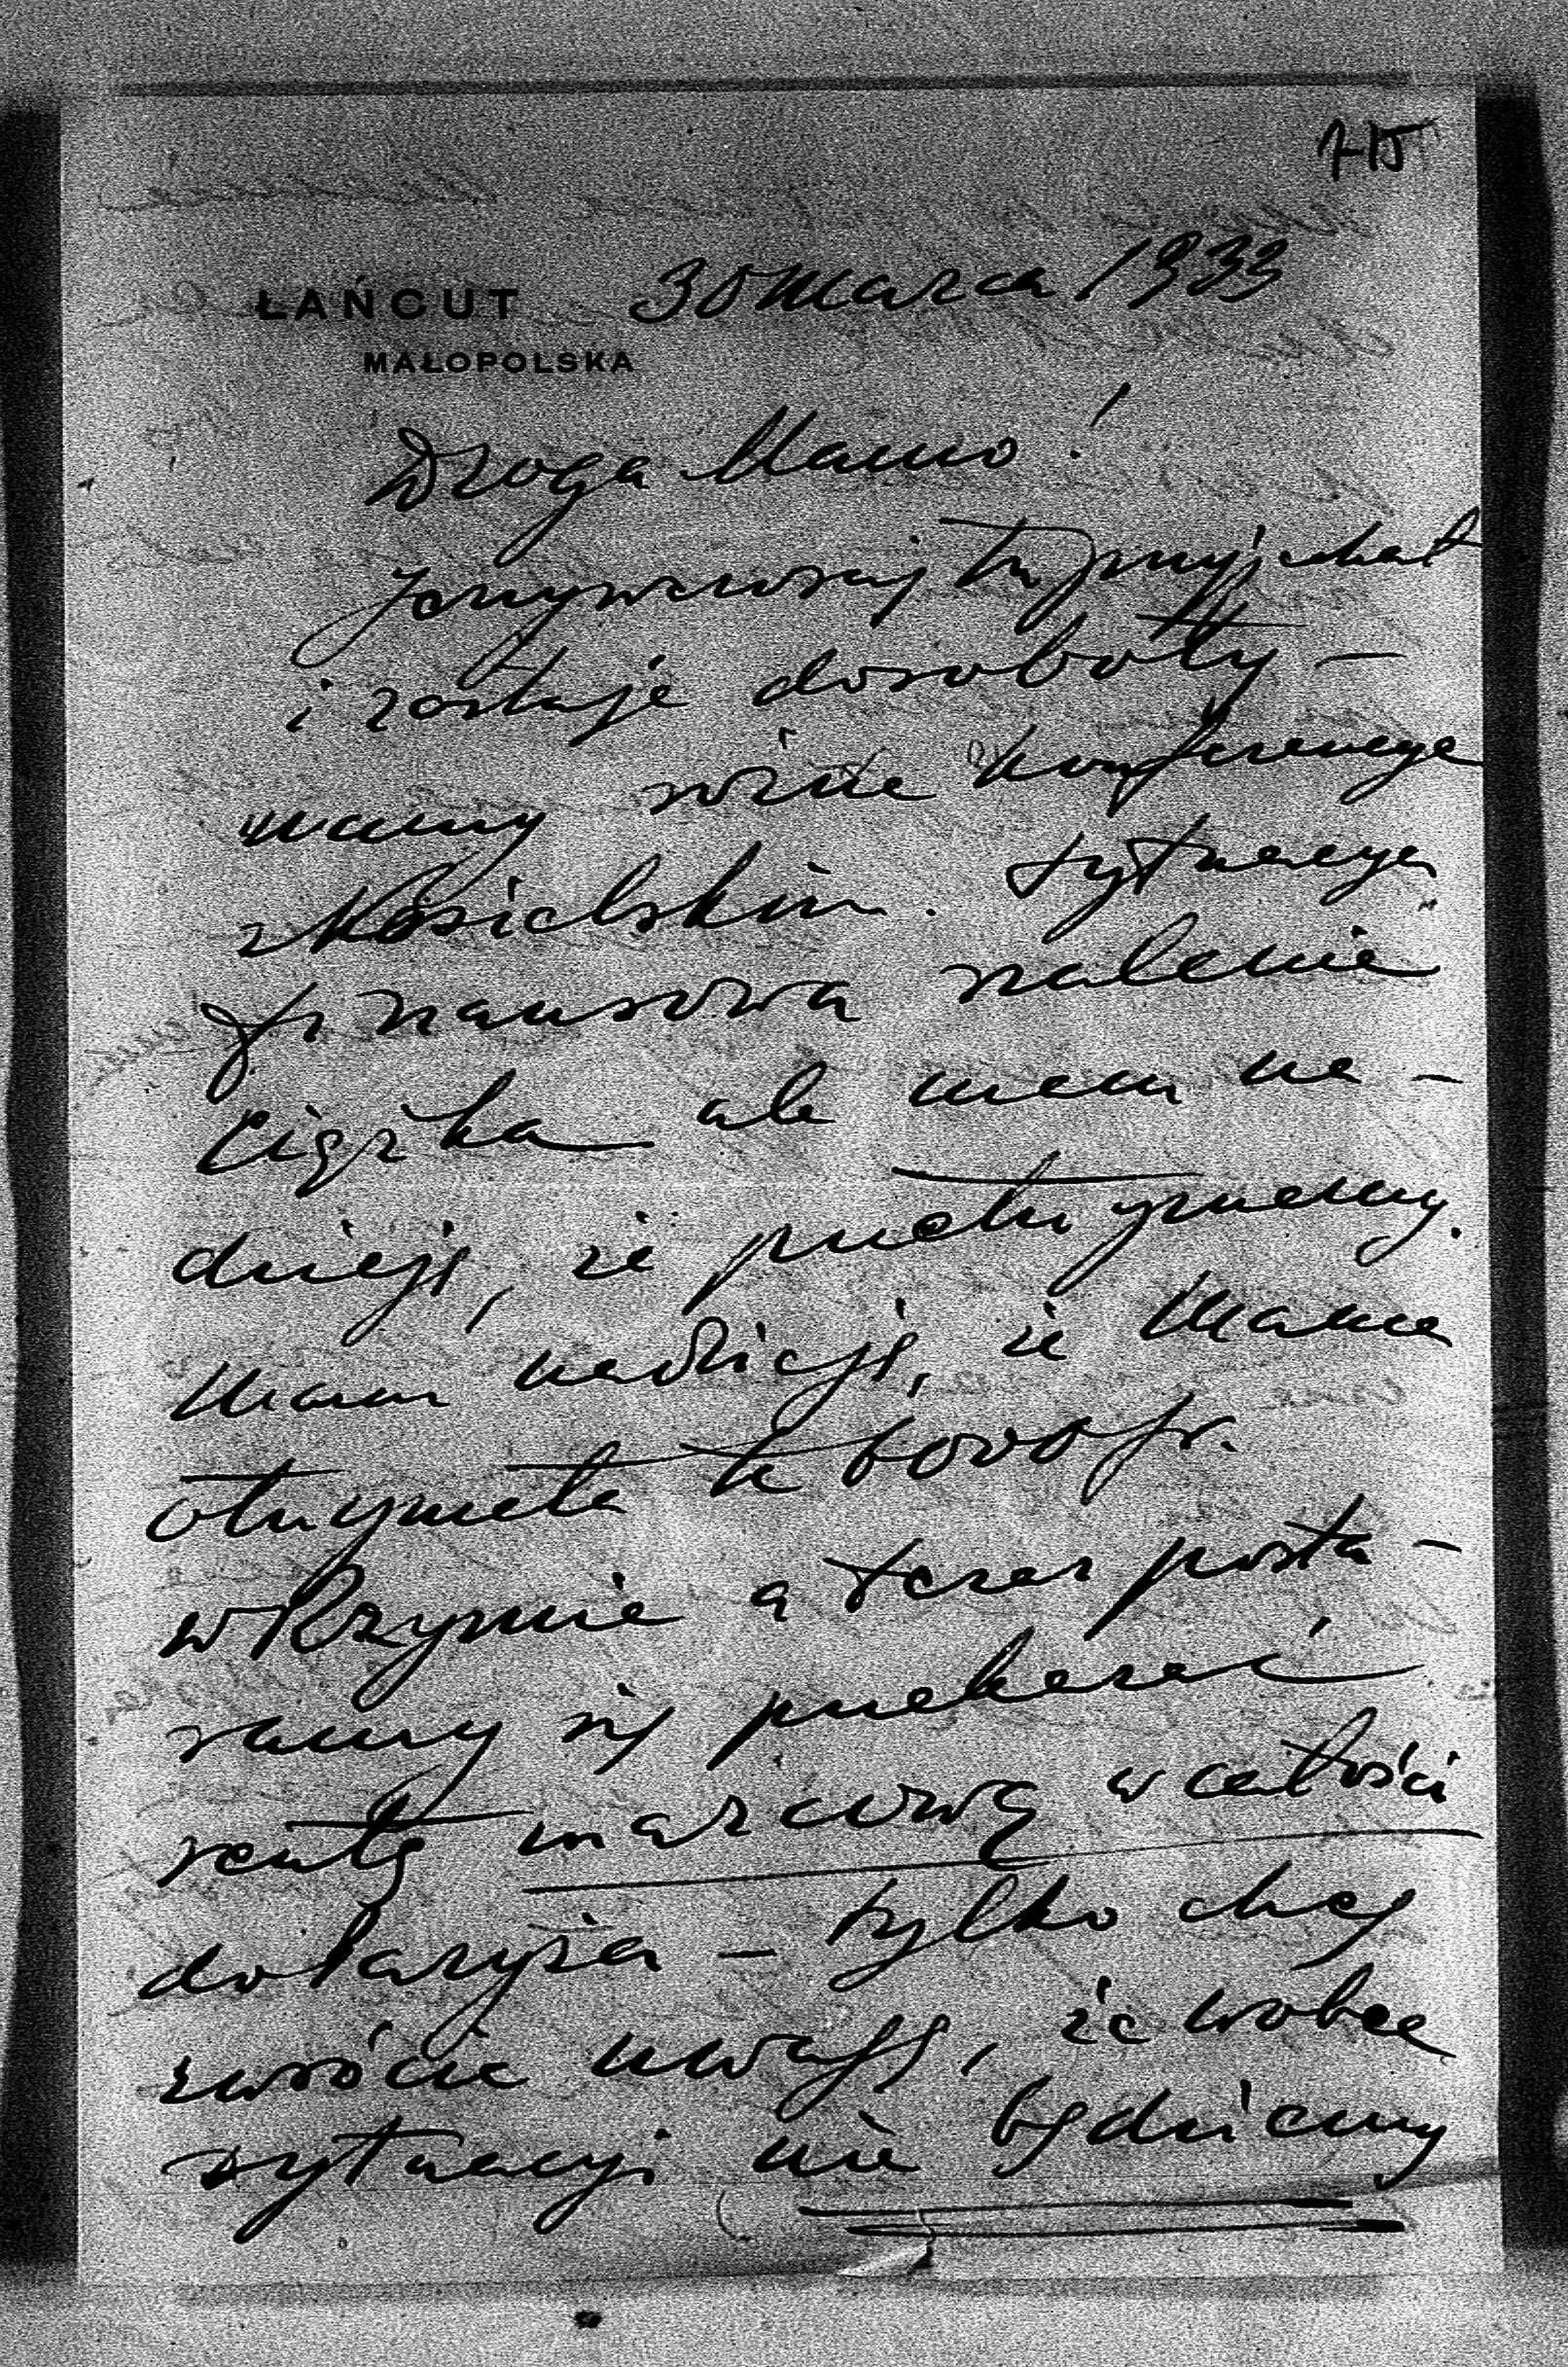 715
ŁAŃCUT 30 marca 1933
MAŁOPOLSKA
Droga Mamo!
Jerzy wczoraj tu przyjechał
i zostaje do soboty —
mamy różne konferencye
z Kosielskim. Sytuacya
finansowa szalenie
ciężka ale mam na-
dzieję, że przetrzymamy.
Mam nadzieję, że Mama
otrzymała te 6000 fr.
w Rzymie a teraz posta-
ramy się przekazać
rentę marcową w całości
do Paryża — tylko chcę
zwrócić uwagę, że wobec
sytuacyi nie będziemy